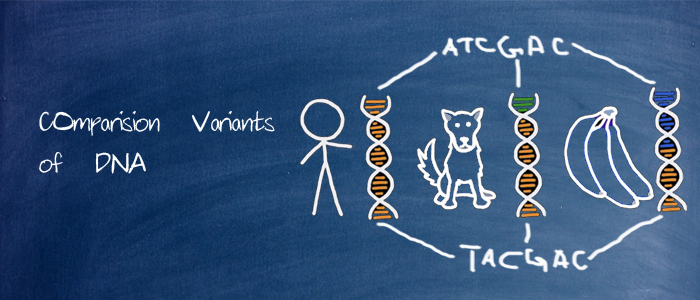 COmparision Variants
of DNA
ATCGAC
TACGAC